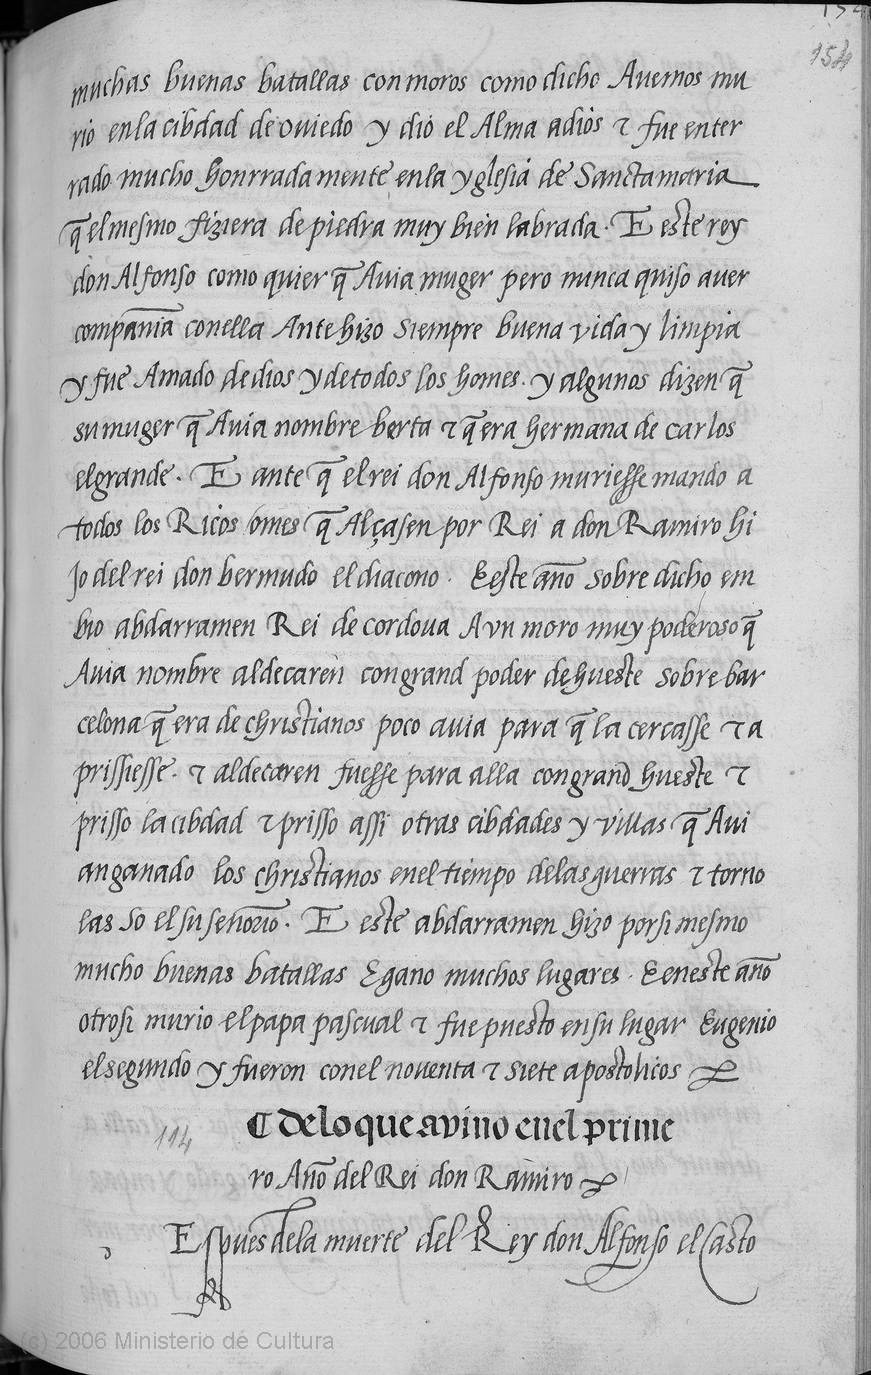 154
muchas buenas batallas con moros como dicho Auemos mu
rio enla cibdad de oviedo y dio el Alma adios τ fue enter
rado mucho honrradamente enla yglesia de Sancta maria
q̃ el mesmo fiziera de piedra muy bien labrada. E este rey
don Alfonso como quier q̃ Auia muger pero nunca quiso auer
compañia conella Ante hizo siempre buena vida y limpia
y fue Amado de dios y de todos los homes. y algunos dizen q̃
su muger q̃ Auia nombre berta τ q̃ era hermana de carlos
el grande. E ante q̃ el rei don Alfonso muriesse mando a
todos los Ricos omes q̃ Alçasen por Rei a don Ramiro hi
jo del rei don bermudo el diacono. E este año sobre dicho em
bio abdarramen Rei de cordoua A vn moro muy poderoso q̃
Auia nombre aldecaren con grand poder de hueste sobre bar
celona q̃ era de christianos poco auia para q̃ la cercasse τ a
prissiesse. τ aldecaren fuesse para alla con grand hueste τ
prisso la cibdad τ prisso assi otras cibdades y villas q̃ Aui
an ganado los christianos enel tiempo delas guerras τ torno
las so el su señorio. E este abdarramen hizo por si mesmo
mucho buenas batallas E gano muchos lugares. E eneste año
otrosi murio el papa pascual τ fue puesto en su lugar Eugenio
el segundo y fueron conel noventa τ siete apostolicos
¶ de lo que avino enel prime
114
ro Año del Rei don Ramiro
d Espues dela muerte del Rey don Alfonso el Casto
(c) 2006 Ministerio de Cultura